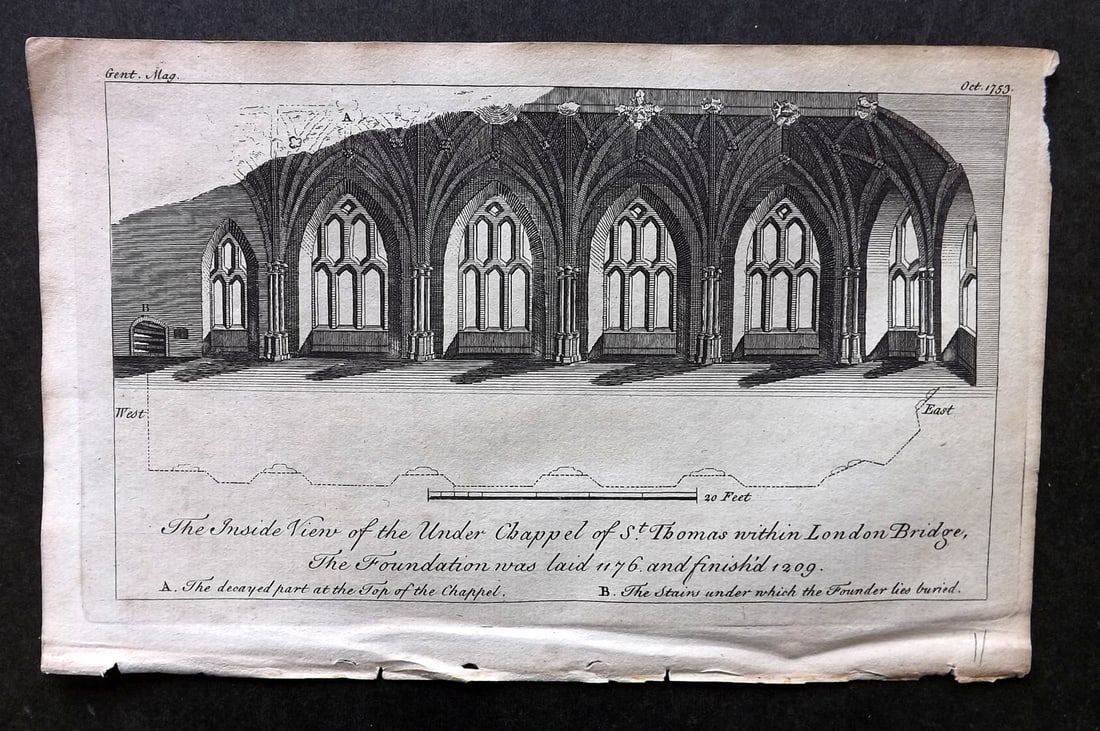 Gent. Mag.
Oct. 1753.
A
B
West
East
20 Feet
The Inside View of the Under Chappel of S.t Thomas within London Bridge,
The Foundation was laid 1176. and finish'd 1209.
A. The decayed part at the Top of the Chappel.
B. The Stairs under which the Founder lies buried.
11